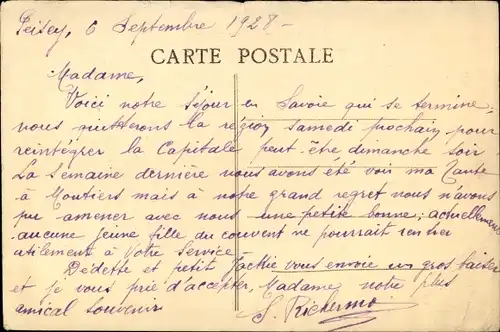 Peisey, 6 Septembre 1928 -
CARTE POSTALE
Madame,
Voici notre séjour en Savoie qui se termine,
nous quitterons la région samedi prochain pour
reintégrer la Capitale peut-être dimanche soir
La semaine dernière nous avons été voir ma Tante
à Moutiers mais à notre grand regret nous n'avons
pu amener avec nous une petite bonne; actuellement
aucune jeune fille du couvent ne pourrait entrer
utilement à Votre Service.
Dédette et petit Jackie vous envoie un gros baiser
et je vous prie d'accepter, Madame, notre plus
amical souvenir.